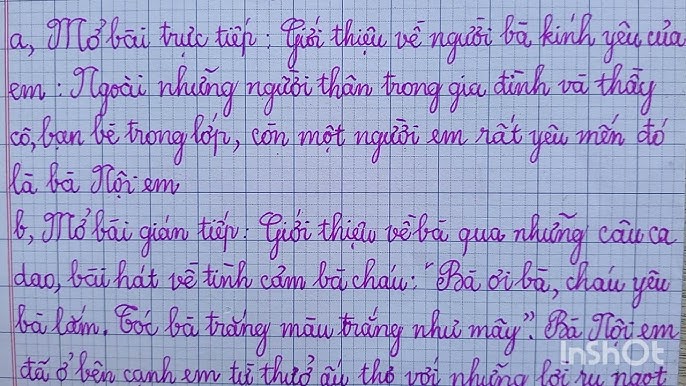 a, Mở bài trực tiếp: Giới thiệu về người bà kính yêu của
em: Ngoài những người thân trong gia đình và thầy
cô, bạn bè trong lớp, còn một người em rất yêu mến đó
là bà Nội em
b, Mở bài gián tiếp: Giới thiệu về bà qua những câu ca
dao, bài hát về tình cảm bà cháu: "Bà ơi bà, cháu yêu
bà lắm. Tóc bà trắng màu trắng như mây". Bà Nội em
đã ở bên cạnh em từ thuở ấu thơ với những lời ru ngọt
InShOt